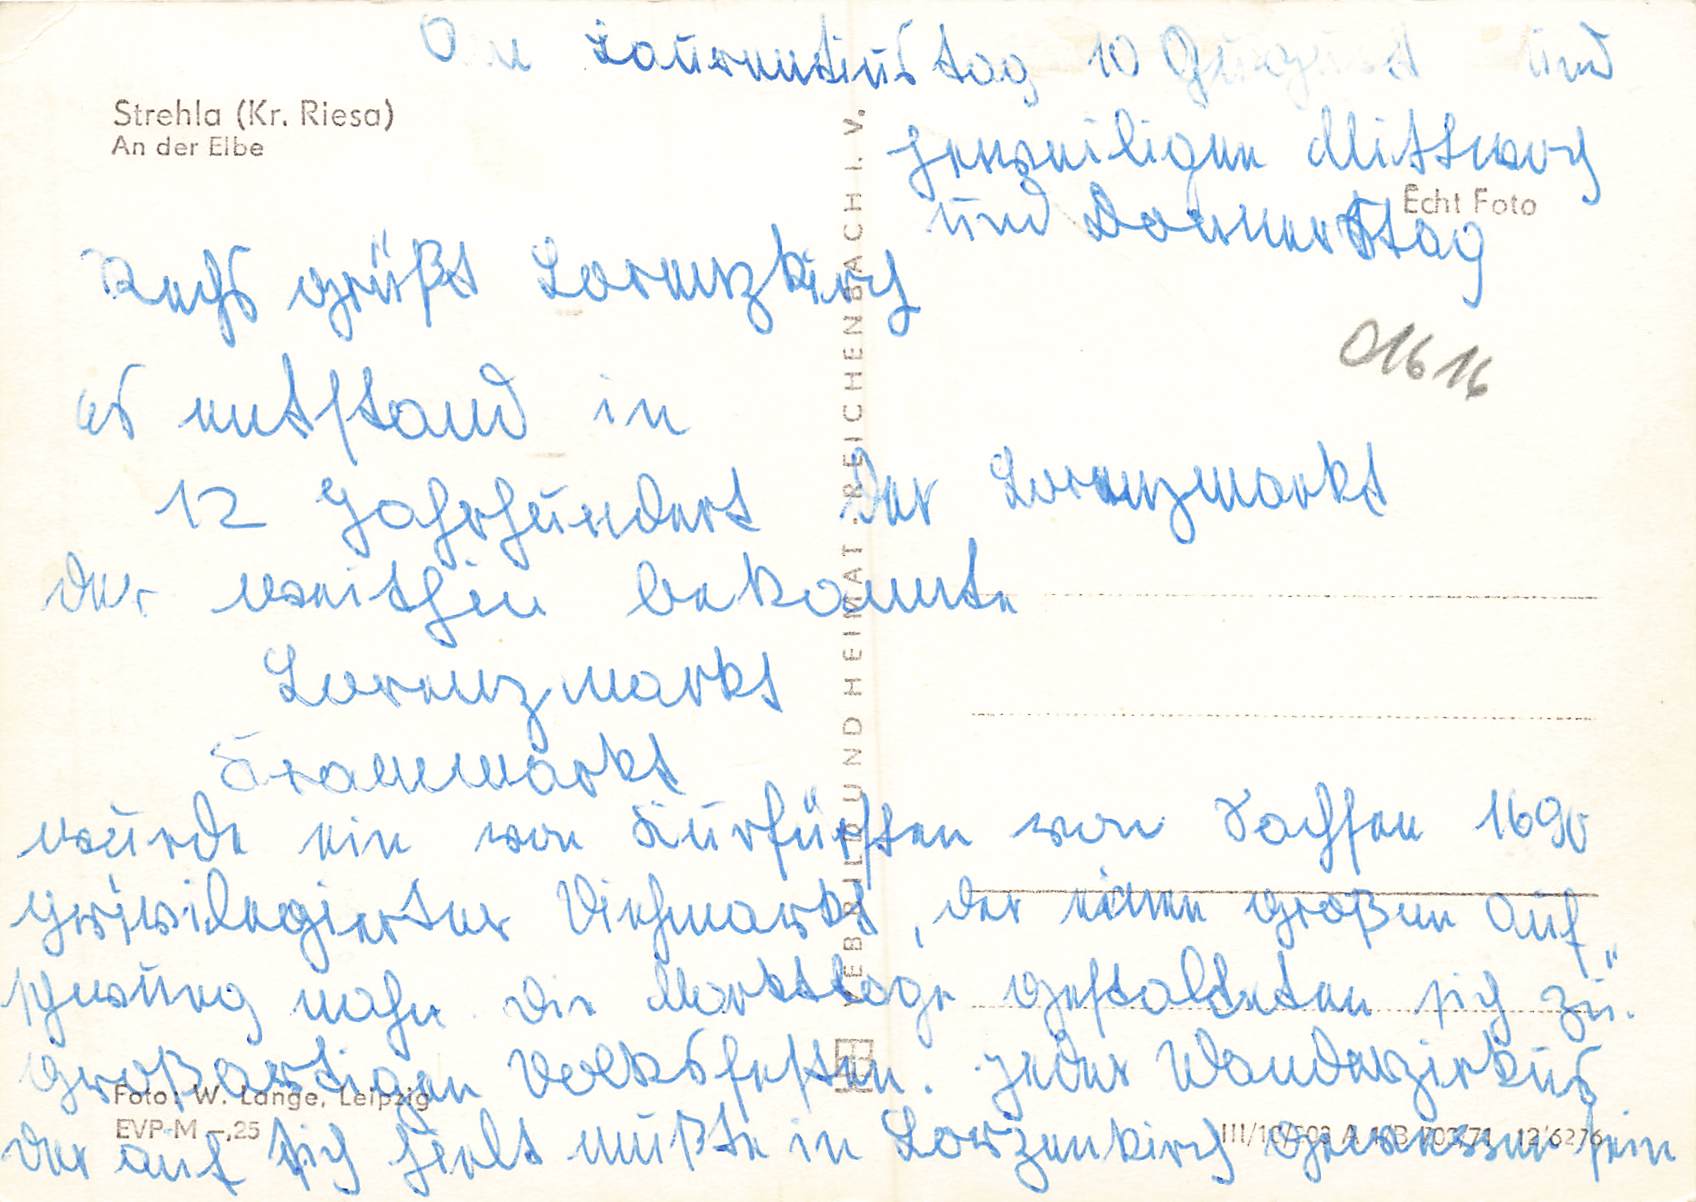 Am Laurentiustag 10 August und
jeweiligen Mittwoch
und Donnerstag
Strehla (Kr. Riesa)
An der Elbe
Echt Foto
Rechs grüßt Lorenzkirch
01616
es entstand in
12 Jahrhundert der Lorenzmarkt
der weithin bekannte
Lorenzmarkt
Krammarkt
wurde ein von Kurfürsten von Sachsen 1690
priwilegierter Viehmarkt, der einen großen Auf„
schwung nahm die Markttage gestalteten sich zu.
großartigen Volksfesten. jeder Wanderzirkus
der auf sich hielt mußte in Lorzenkirch gewessen sein
Foto: W. Lange, Leipzig
EVP-M -,25
VEB BILD UND HEIMAT · REICHENBACH I. V.